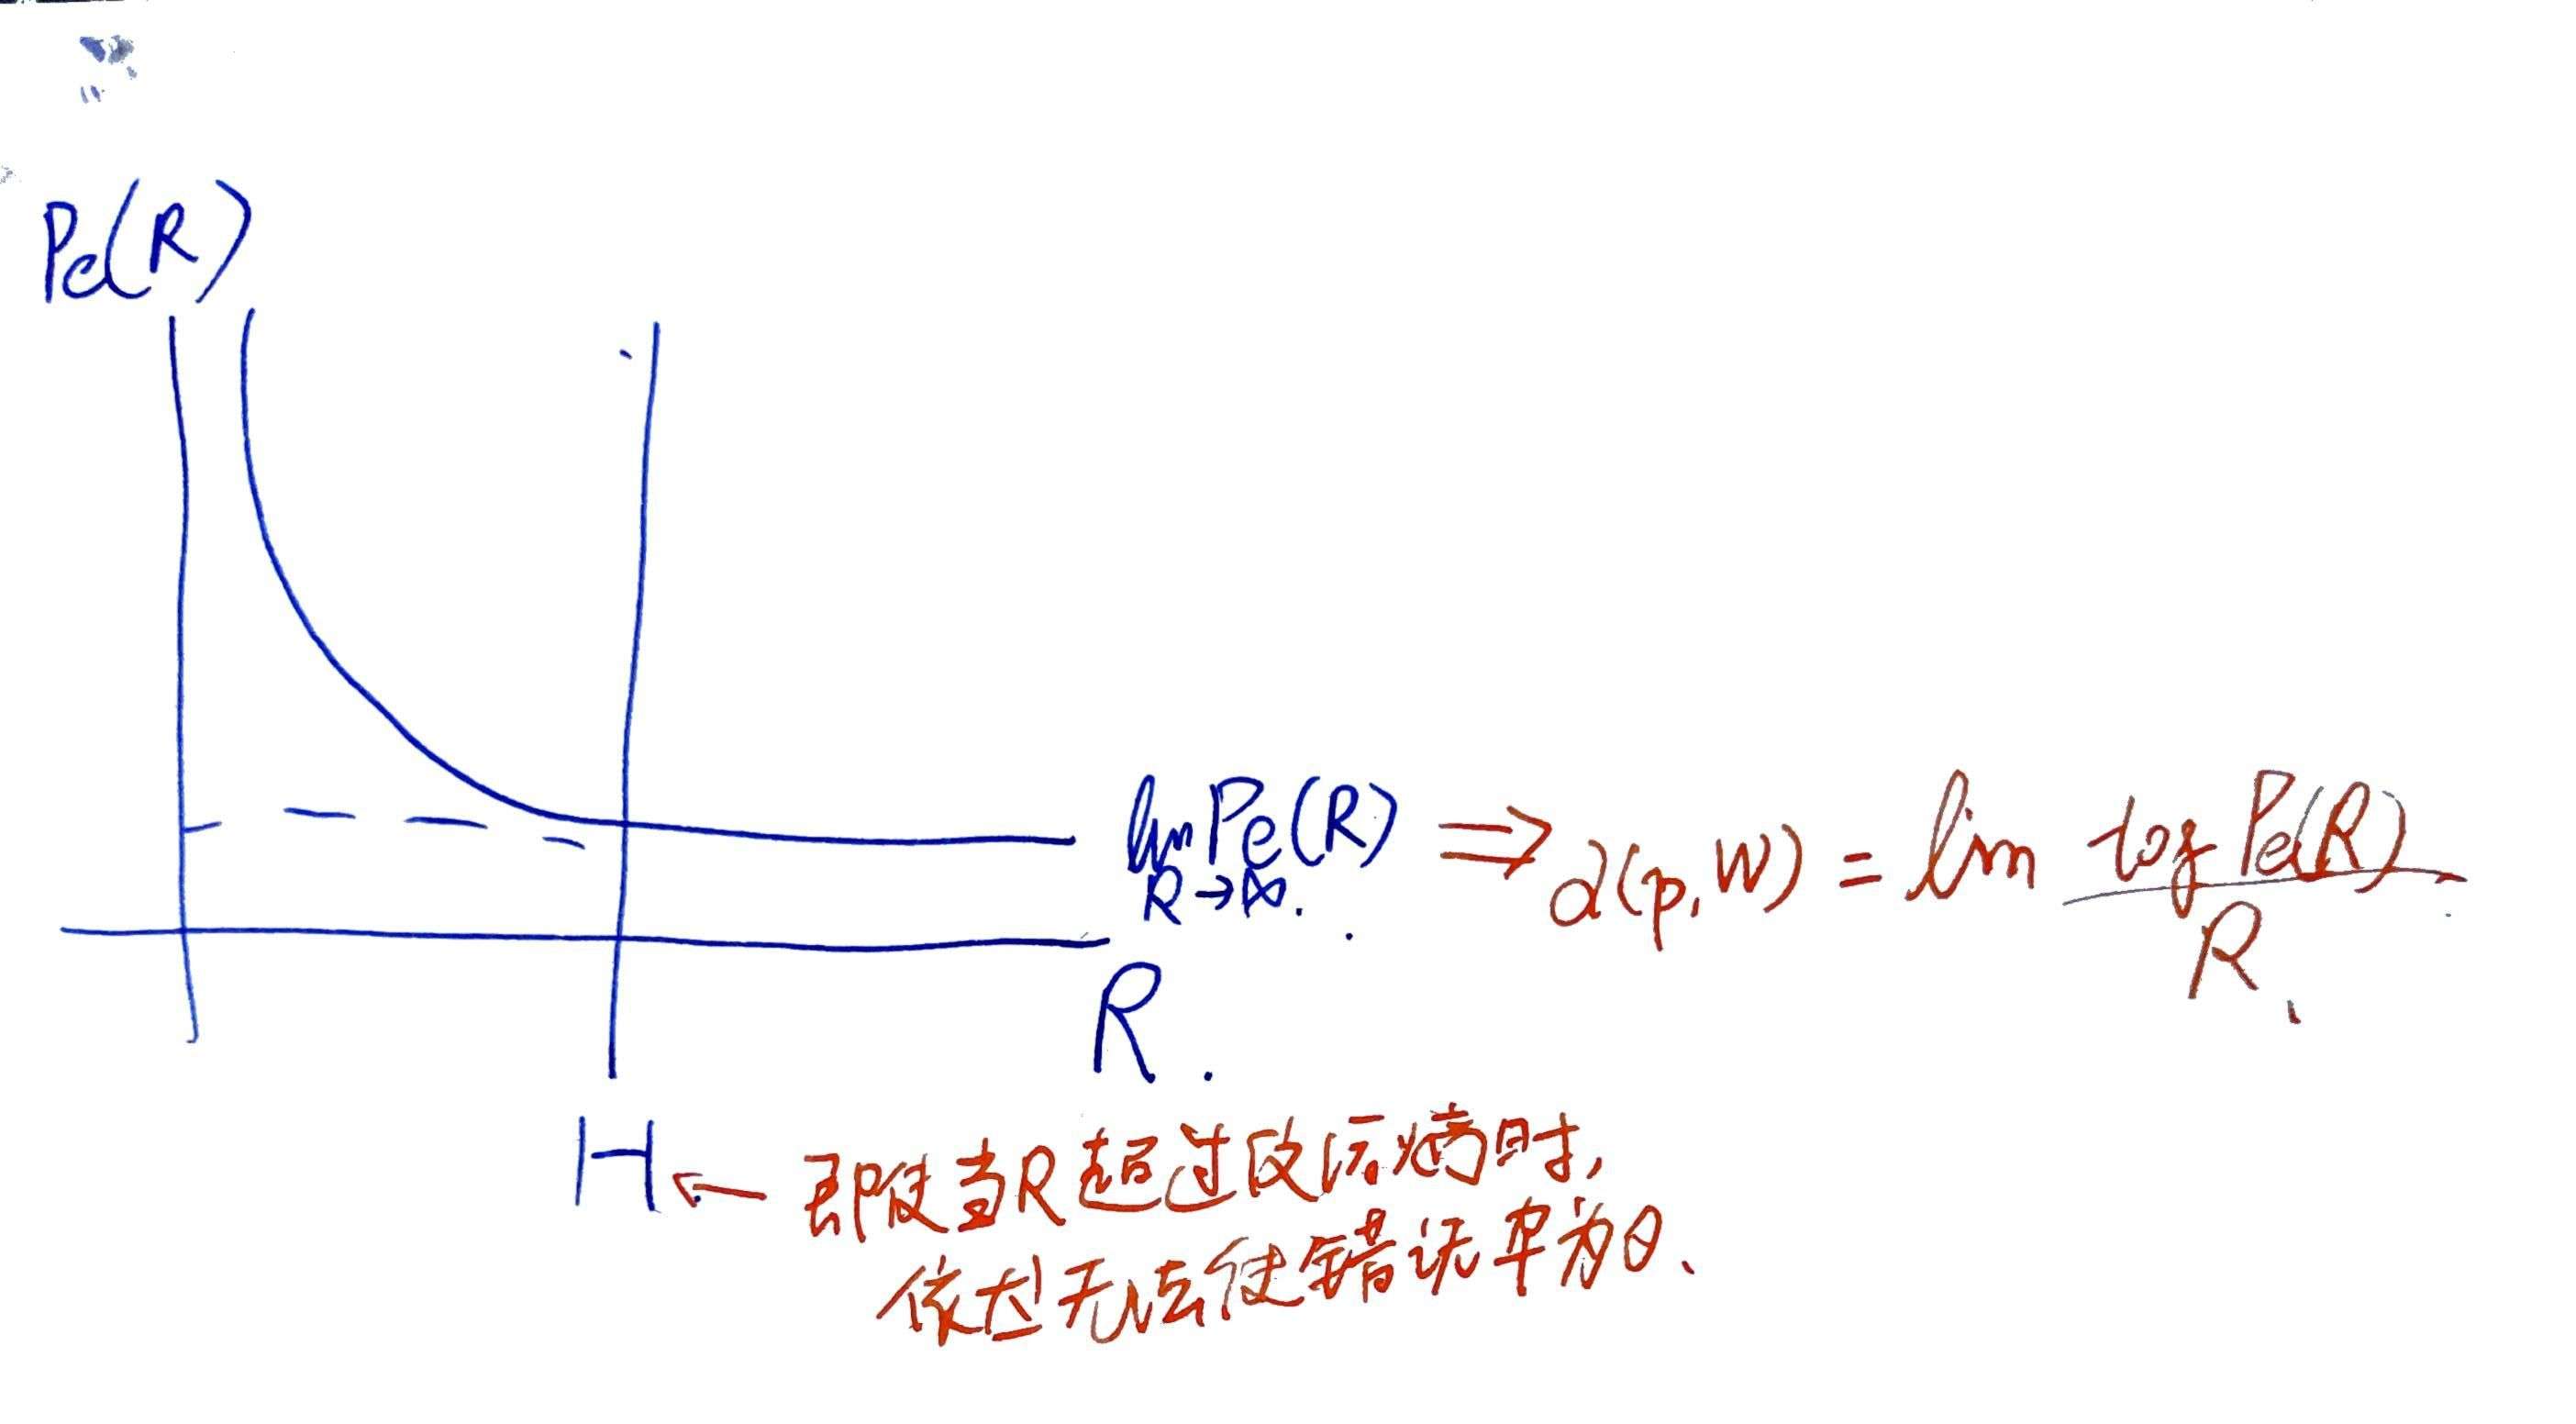 Pe(R)
lim Pe(R) ⇒ α(p, W) = lim log Pe(R)
R→∞.
R
R.
H ← 即使当R超过信源熵时,
依然无法使错误率为0、